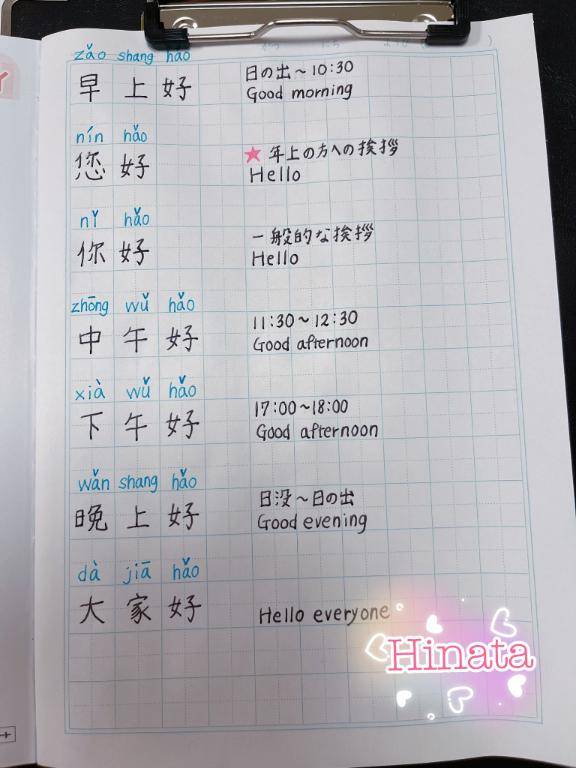 zǎo shang hǎo
早上好
日の出～10:30
Good morning
nín hǎo
您好
★年上の方への挨拶
Hello
nǐ hǎo
你好
一般的な挨拶
Hello
zhōng wǔ hǎo
中午好
11:30～12:30
Good afternoon
xià wǔ hǎo
下午好
17:00～18:00
Good afternoon
wǎn shang hǎo
晚上好
日没～日の出
Good evening
dà jiā hǎo
大家好
Hello everyone
Hinata